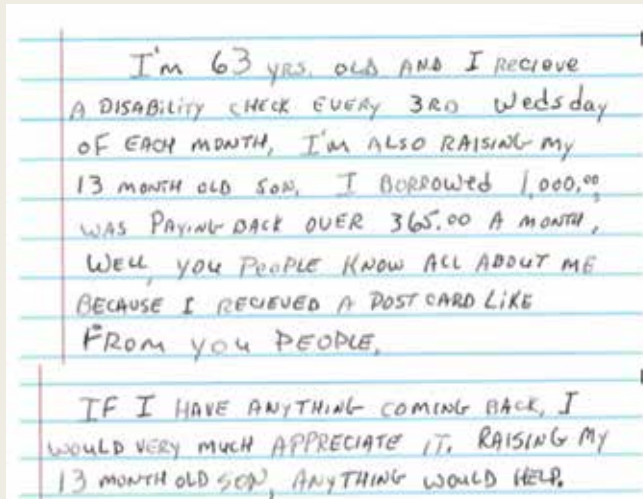 I'm 63 yrs. old and I recieve
a disability check every 3rd Wedsday
of each month, I'm also raising my
13 month old son. I borrowed 1,000.00,
was paying back over 365.00 a month,
Well, you people know all about me
because I recieved a post card like
from you people.
If I have anything coming back, I
would very much appreciate it. Raising my
13 month old son, anything would help.